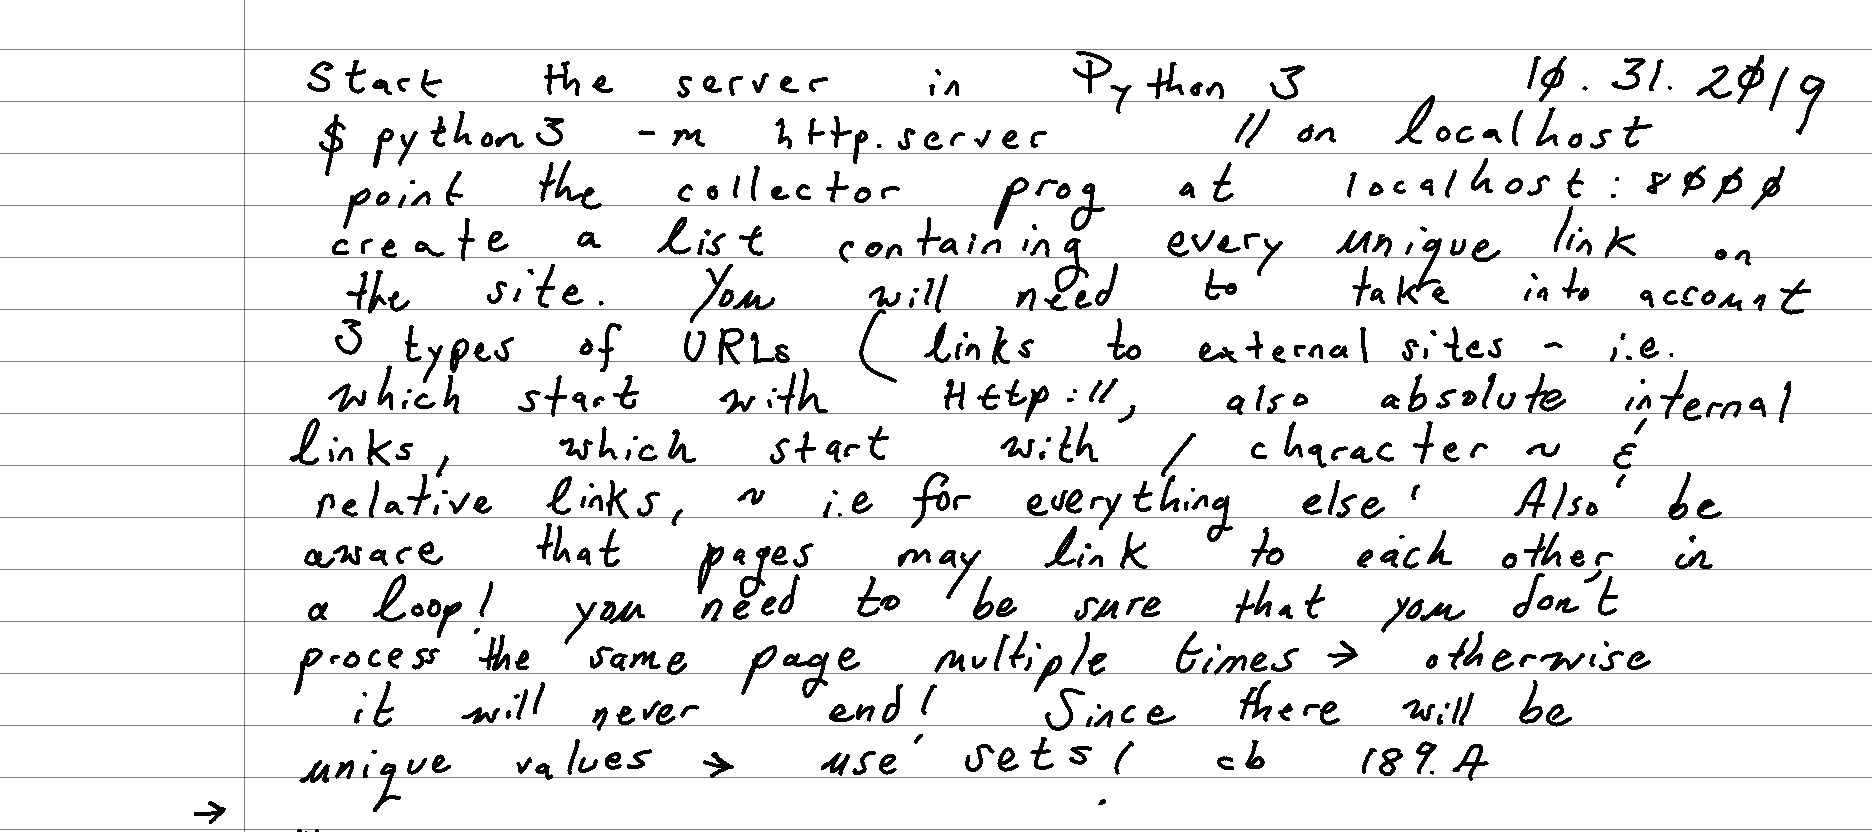 Start the server in Python 3 10.31.2019
$ python3 -m http.server // on localhost
point the collector prog at localhost:8000
create a list containing every unique link on
the site. You will need to take into account
3 types of URLs ( links to external sites ~ i.e.
which start with Http://, also absolute internal
links, which start with / character ~ &
relative links, ~ i.e for everything else! Also be
aware that pages may link to each other in
a loop! you need to be sure that you don't
process the same page multiple times → otherwise
it will never end! Since there will be
unique values → use sets! cb 189.A
→